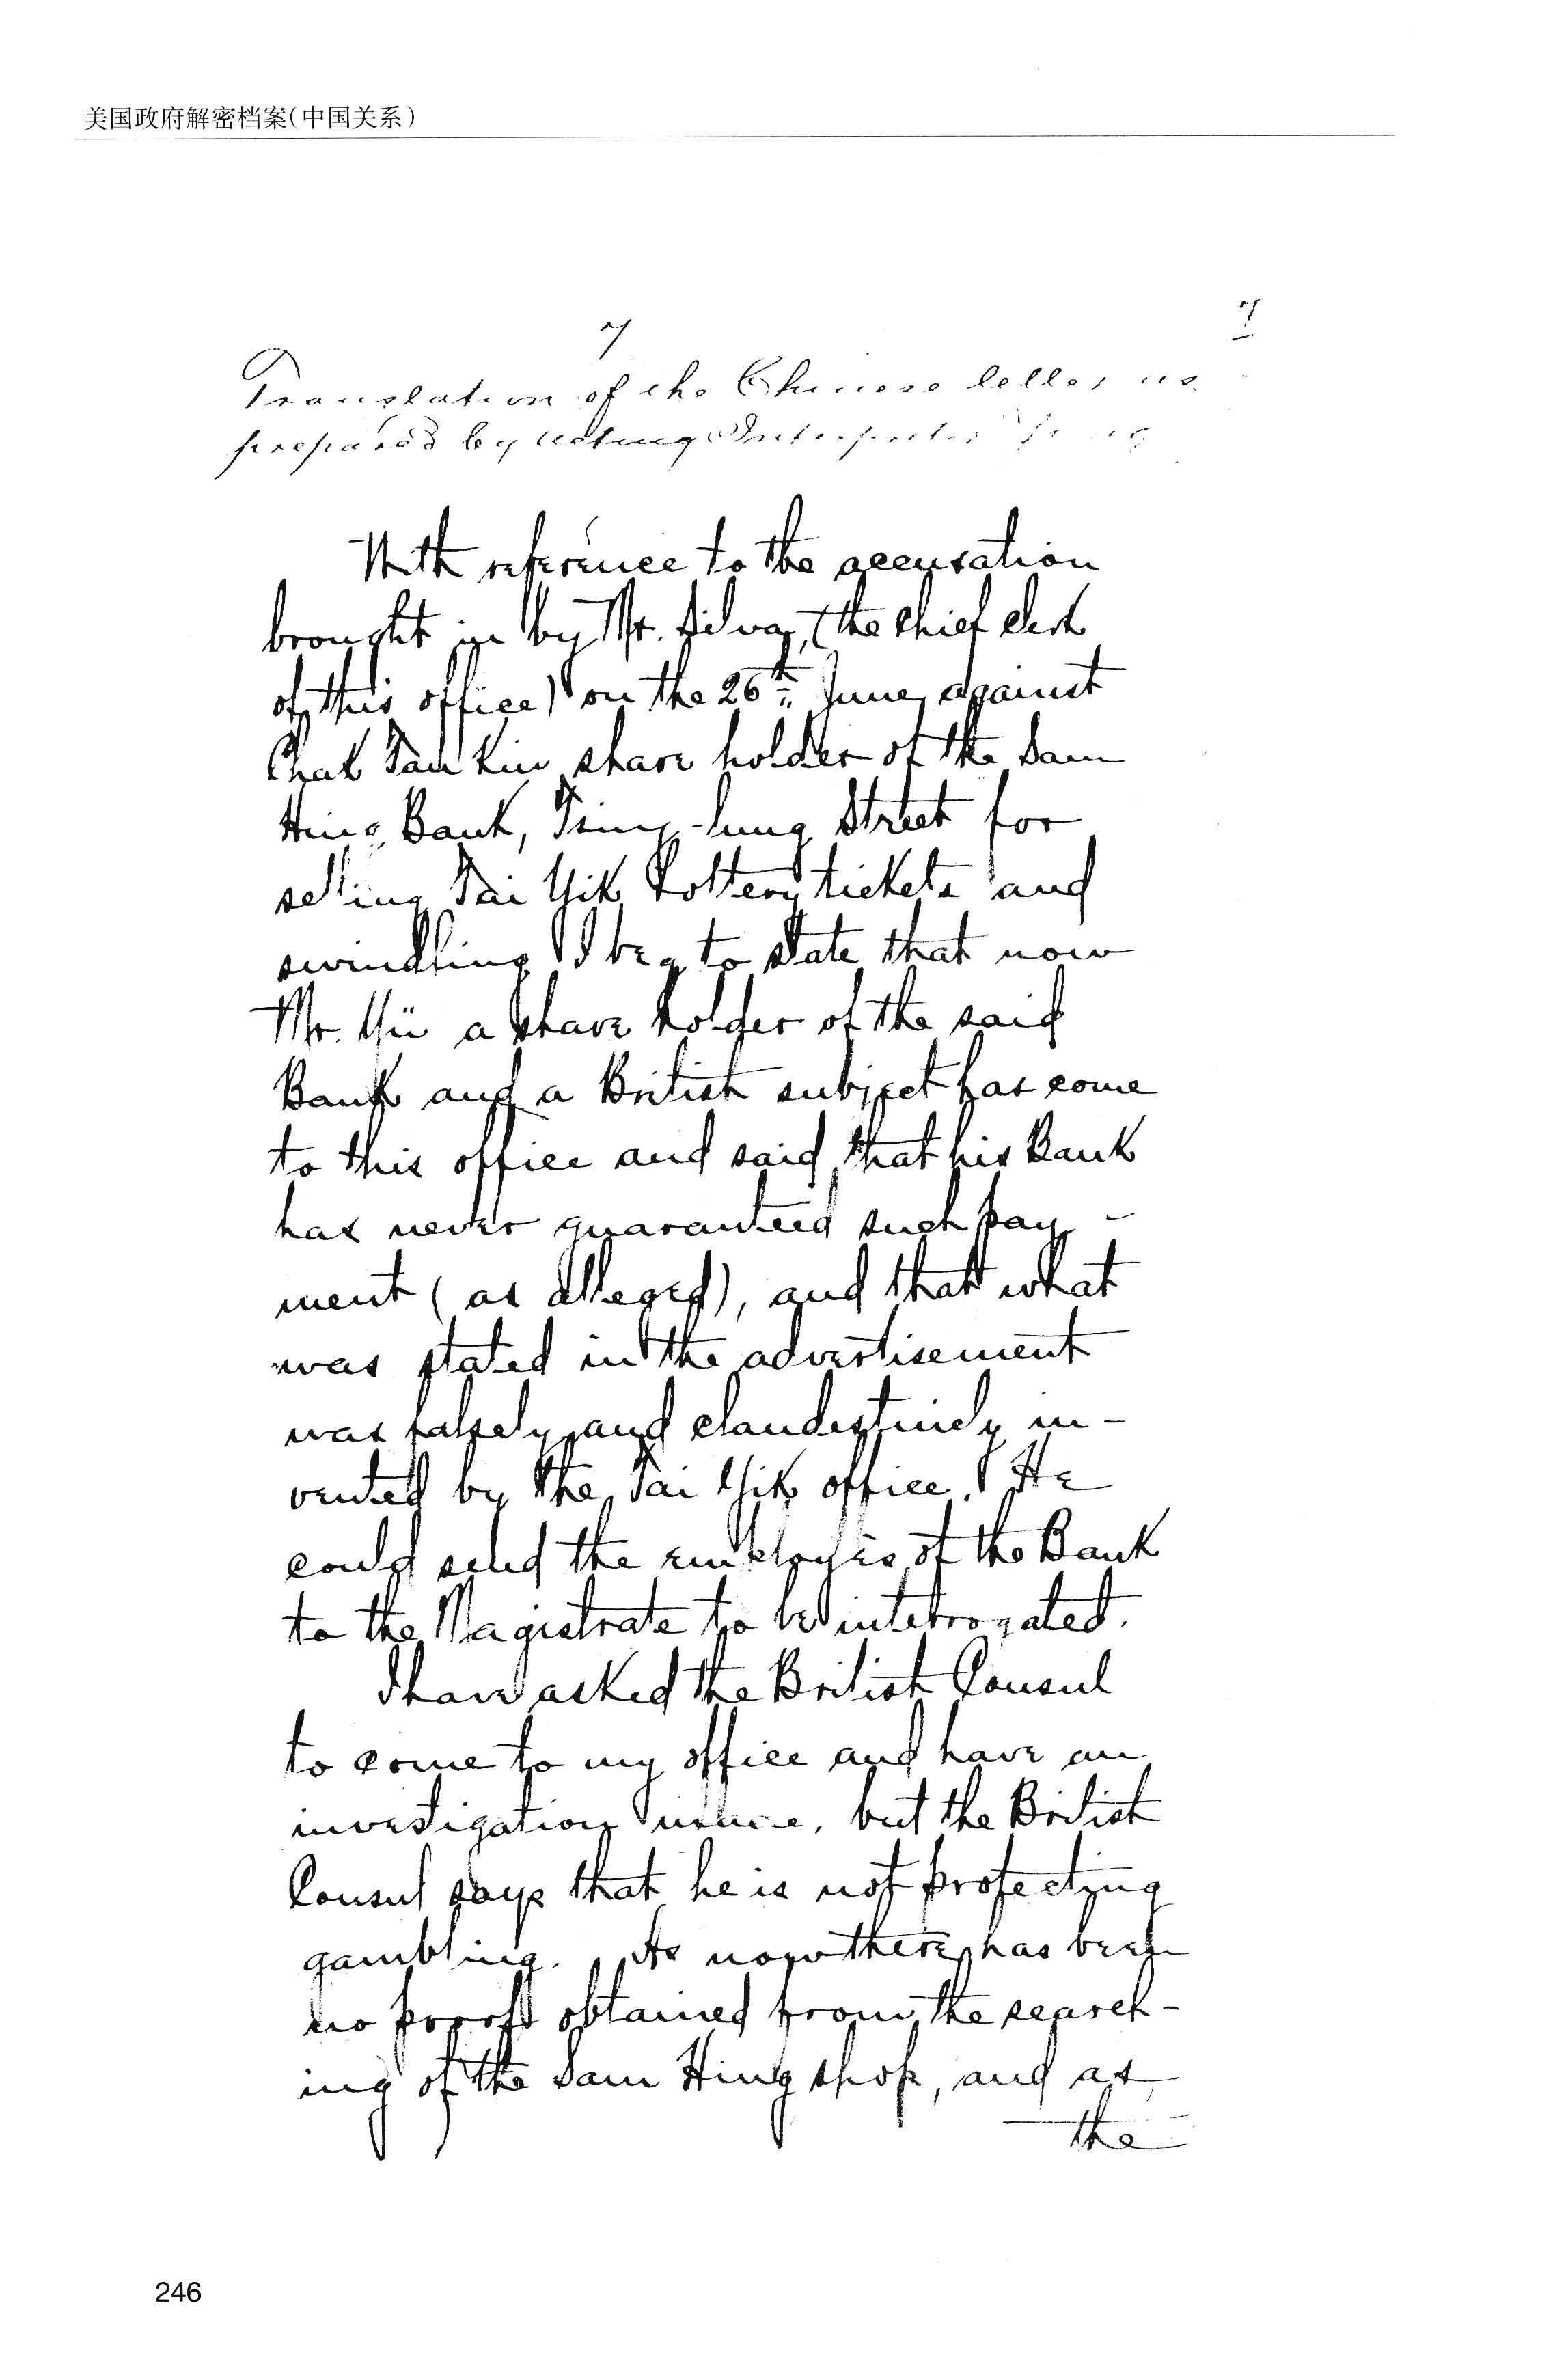 美国政府解密档案(中国关系)
7
7
Translation of the Chinese letter as
prepared by Acting Interpreter
With reference to the accusation
brought in by Mr. Silva, (the chief clerk
of this office) on the 26th June, against
Chak Tan Kin share holder of the Sam
Hing Bank, Tsing-lung Street for
selling Tai Yik Lottery tickets and
swindling I beg to state that now
Mr. Yü a share holder of the said
Bank and a British subject has come
to this office and said that his Bank
has never guaranteed such pay-
ment (as alleged), and that what
was stated in the advertisement
was falsely and clandestinely in-
vented by the Tai Yik office. He
could send the employés of the Bank
to the Magistrate to be interrogated.
I have asked the British Consul
to come to my office and have an
investigation made, but the British
Consul says that he is not protecting
gambling. As now there has been
no proof obtained from the search-
ing of the Sam Hing shop, and as
the
246